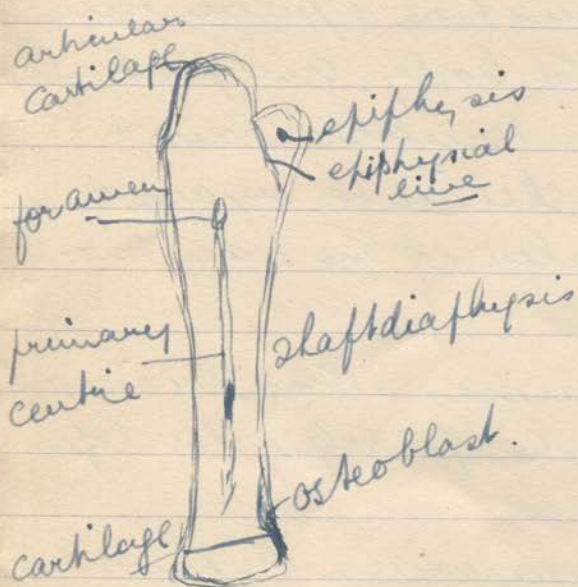 articular
cartilage
epiphysis
epiphysial
line
foramen
primary
centre
shaft diaphysis
osteoblast.
cartilage